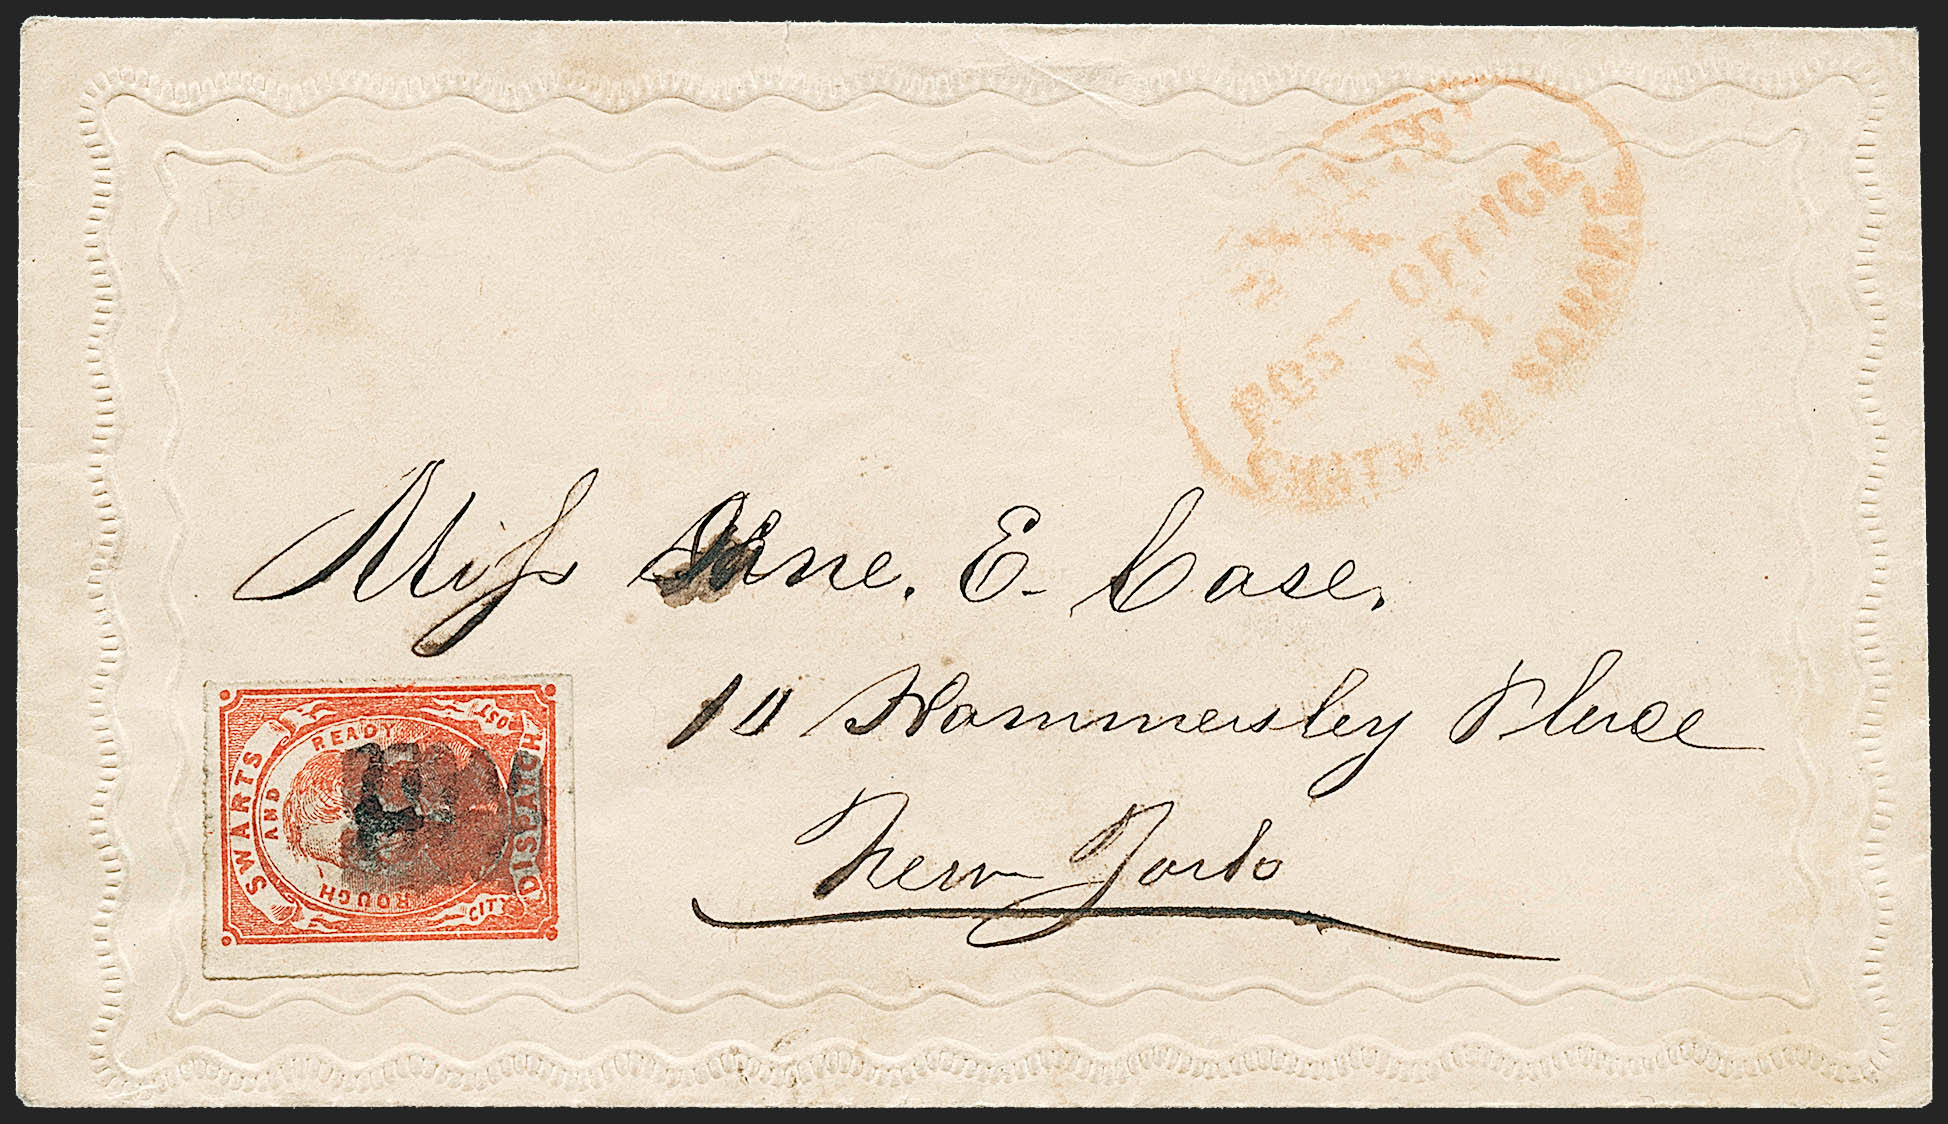 POST OFFICE
N.Y.
CHATHAM SQUARE
Miss Jane. E. Case.
10 Hammersley Place
New York
SWARTS
READY
AND
ROUGH
POST
CITY
DISPATCH